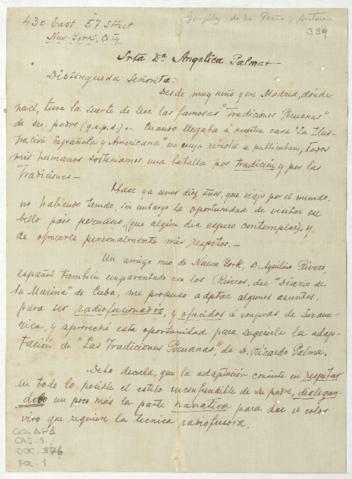 430 East 57 Street
New York, City
González de la Peña, Antonio
339
Srta Dª Angélica Palma
Distinguida Señorita:
Desde muy niño y en Madrid, donde
nací, tuve la suerte de leer las famosas "Tradiciones Peruanas"
de su padre (q.e.p.d.). Cuando llegaba á nuestra casa "La Ilus-
tración Española y Americana" en cuya revista se publicaban, todos
mis hermanos sosteníamos una batalla por tradición y por las
tradiciones.—
Hace ya unos diez años, que viajo por el mundo,
no habiendo tenido, sin embargo la oportunidad de visitar su
bello país peruano, (que algún día espero contemplar), y
de ofrecerle personalmente mis respetos.—
Un amigo mío de Nueva York, D. Aquilino Rivero,
español también emparentado con los Riveros, del "Diario de
la Marina" de Cuba, me propuso adaptar algunos asuntos.
para ser radiofusionados, y ofrecidos á emisoras de Sur amé-
rica, y aproveché esta oportunidad para sugerirle la adap-
tación de "Las Tradiciones Peruanas", de D. Ricardo Palma.
Debo decirla, que la adaptación consiste en respetar
en todo lo posible el estilo inconfundible de su padre, dialogan-
do un poco más la parte narrativa para dar el color
vivo que requiere la técnica radiofusora.
CAJ. 1
DOC. 376
FO. 1